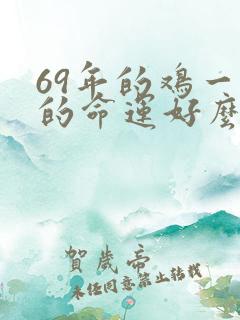 69年的鸡一
的命运好麽
賀歲帝
未经同意禁止转载